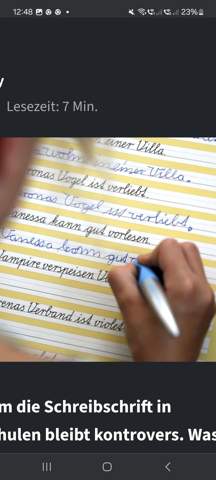 12:48
23%
y
Lesezeit: 7 Min.
einer Villa.
wohnt in einer Villa.
Vogel ist verliebt.
Vogel ist verliebt.
anessa kann gut vorlesen.
Vanessa kann gut
Vampire verspeisen
enas Verband ist violet
m die Schreibschrift in
hulen bleibt kontrovers. Was